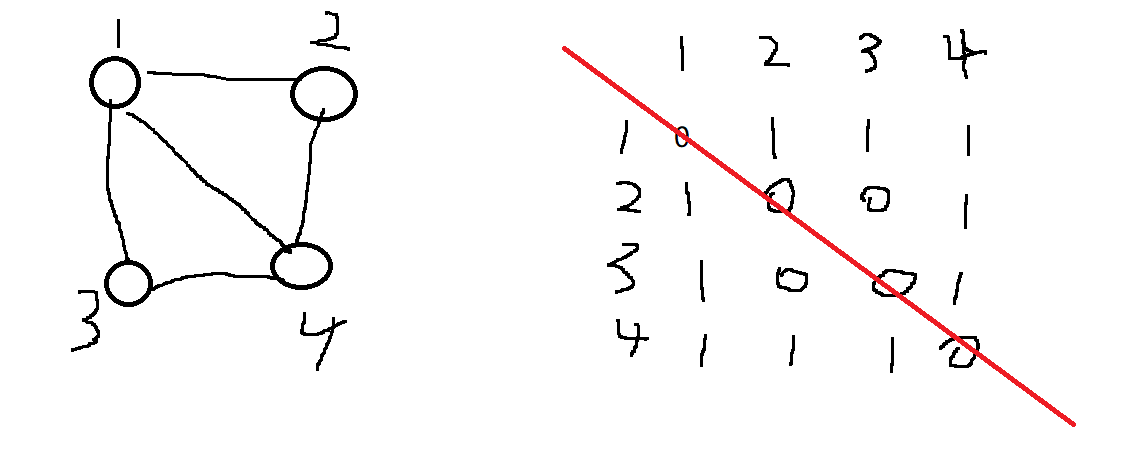 1 2
3 4
1 2 3 4
1 0 1 1 1
2 1 0 0 1
3 1 0 0 1
4 1 1 1 0